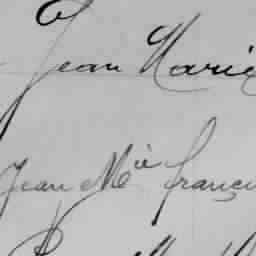 Jean Marie
Jean Mie franç